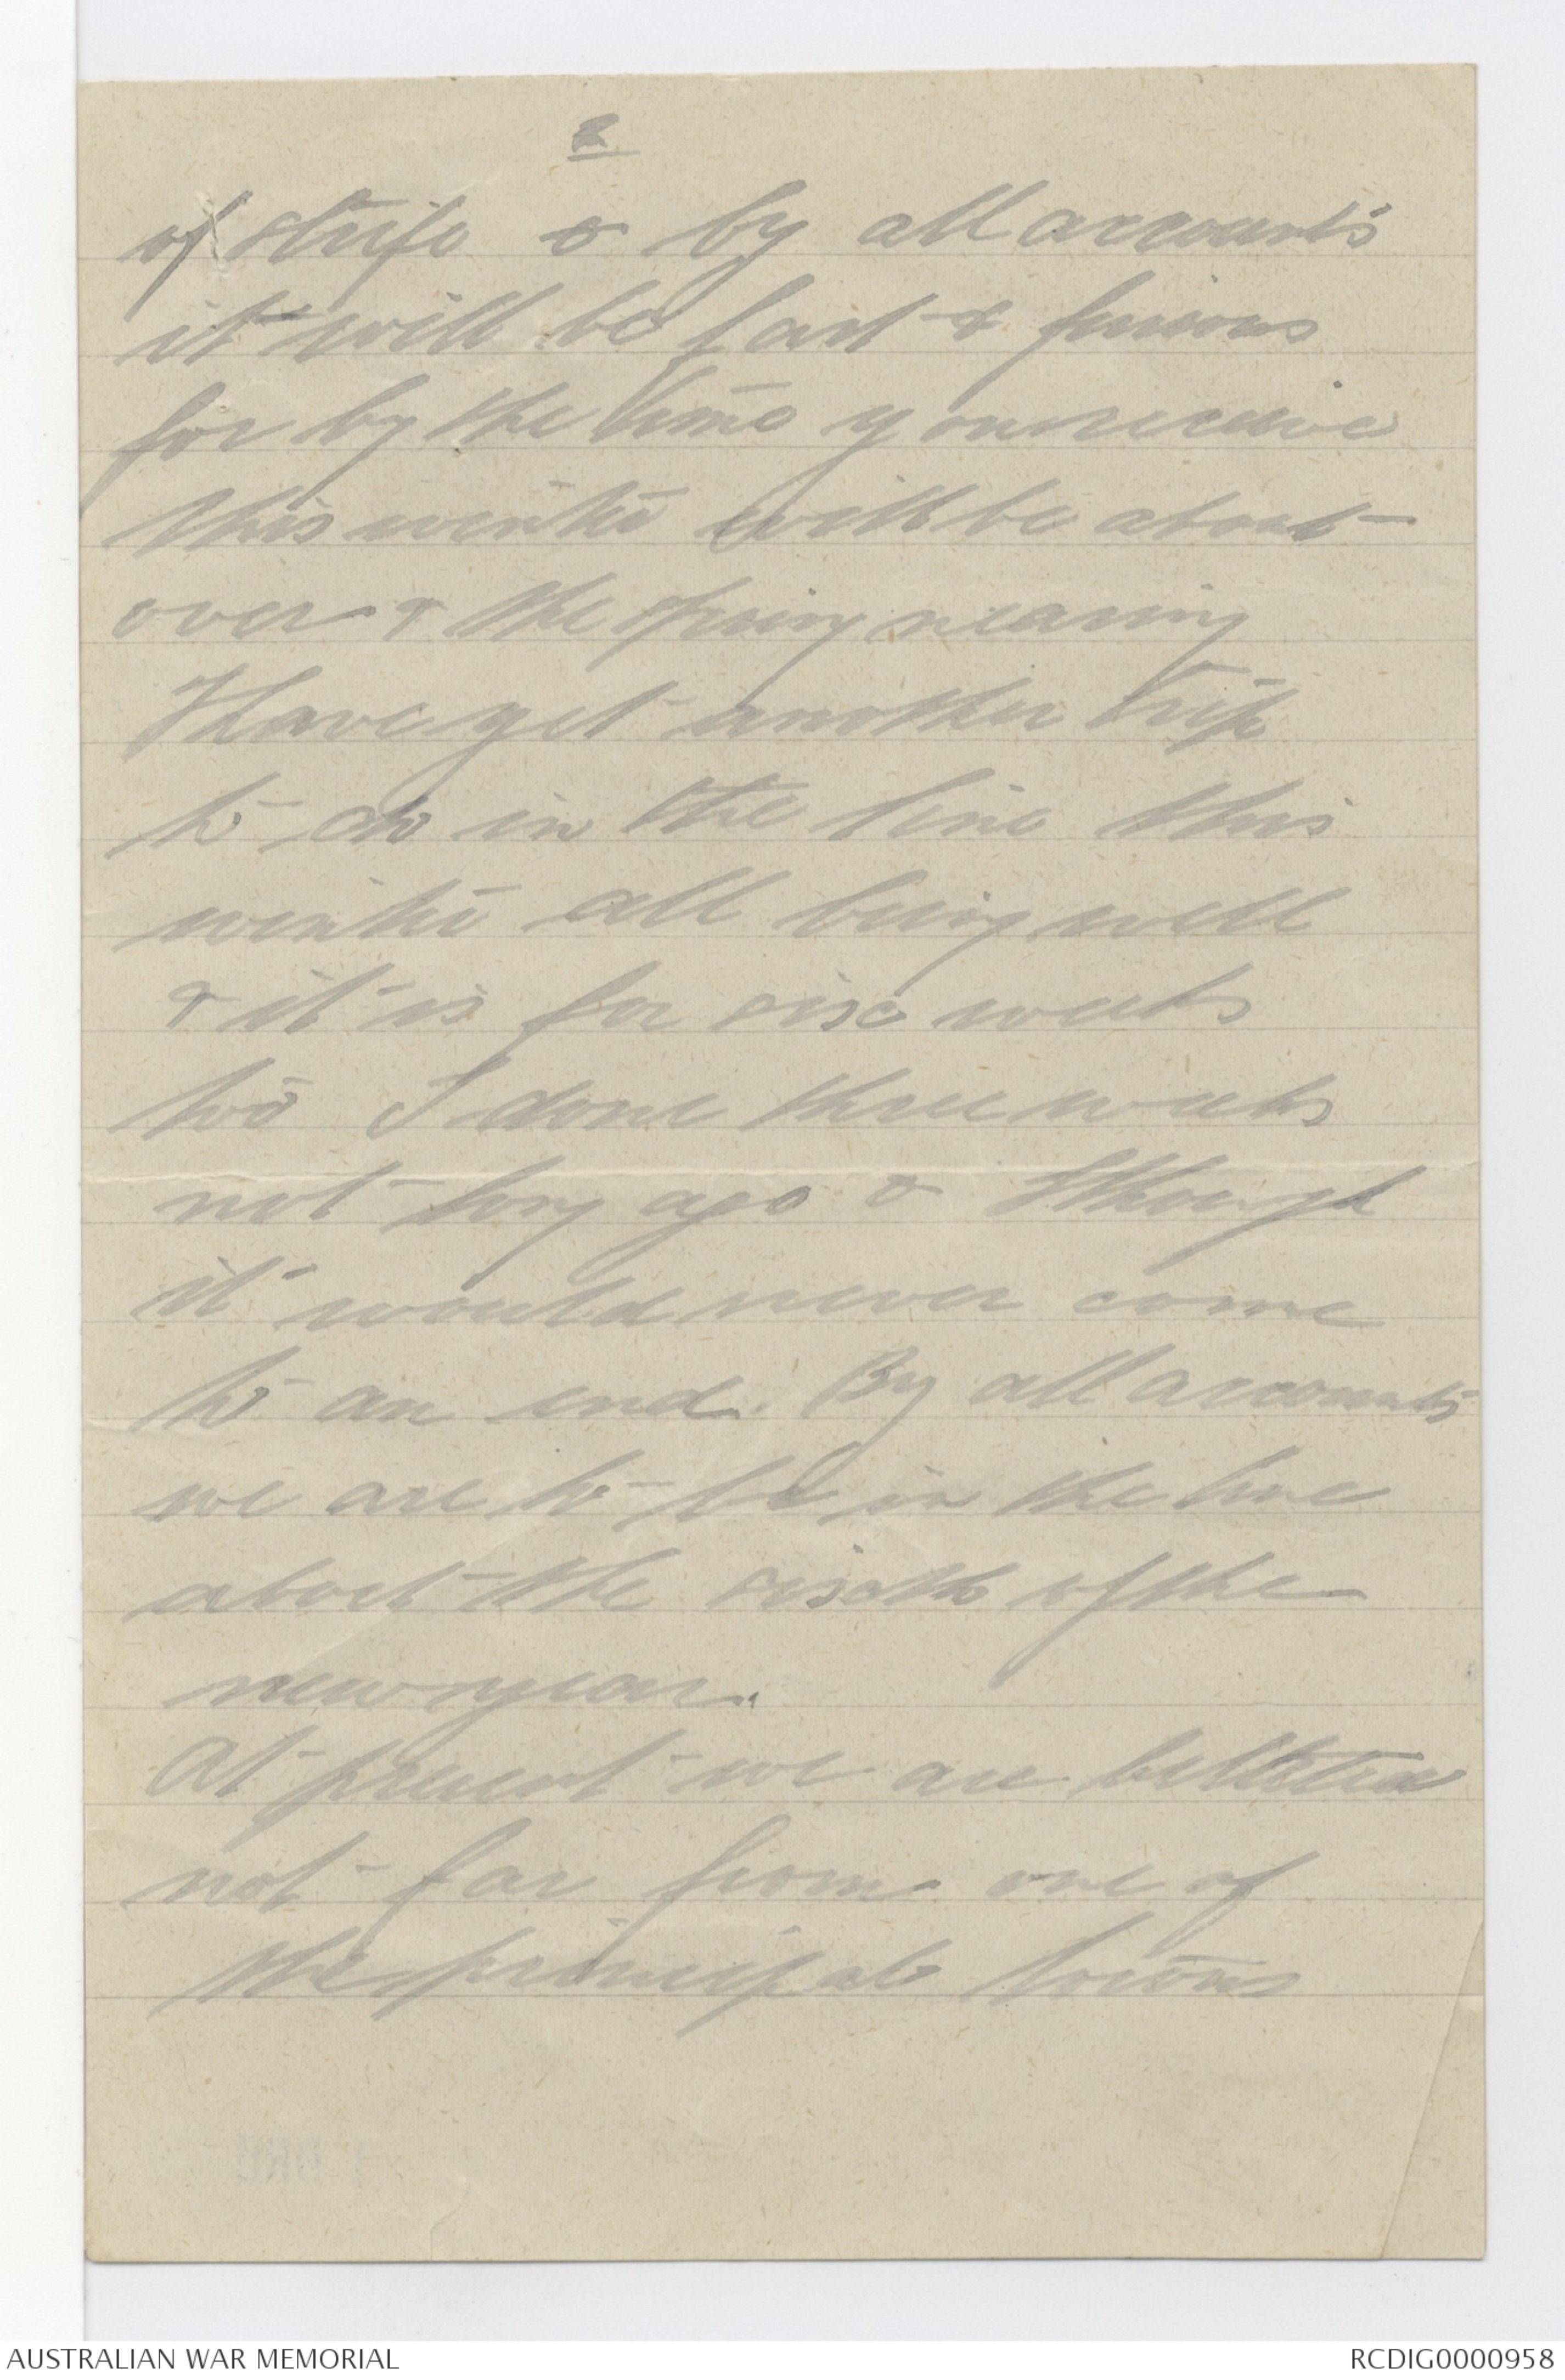 2
of strife & by all accounts
it will be fast & furious
for by the time you receive
this winter will be about
over & the spring nearing
I have yet another trip
to do in the line this
winter all being well
& it is for six weeks
too I done three weeks
not long ago & I though
it would never come
to an end. By all accounts
we are to be in the line
about the sixth of the
new year.
At present we are
not far from one of
the principal towns
AUSTRALIAN WAR MEMORIAL
RCDIG0000958